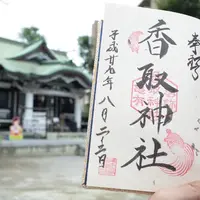 奉拝
香取神社
平成廿七年八月二十二日